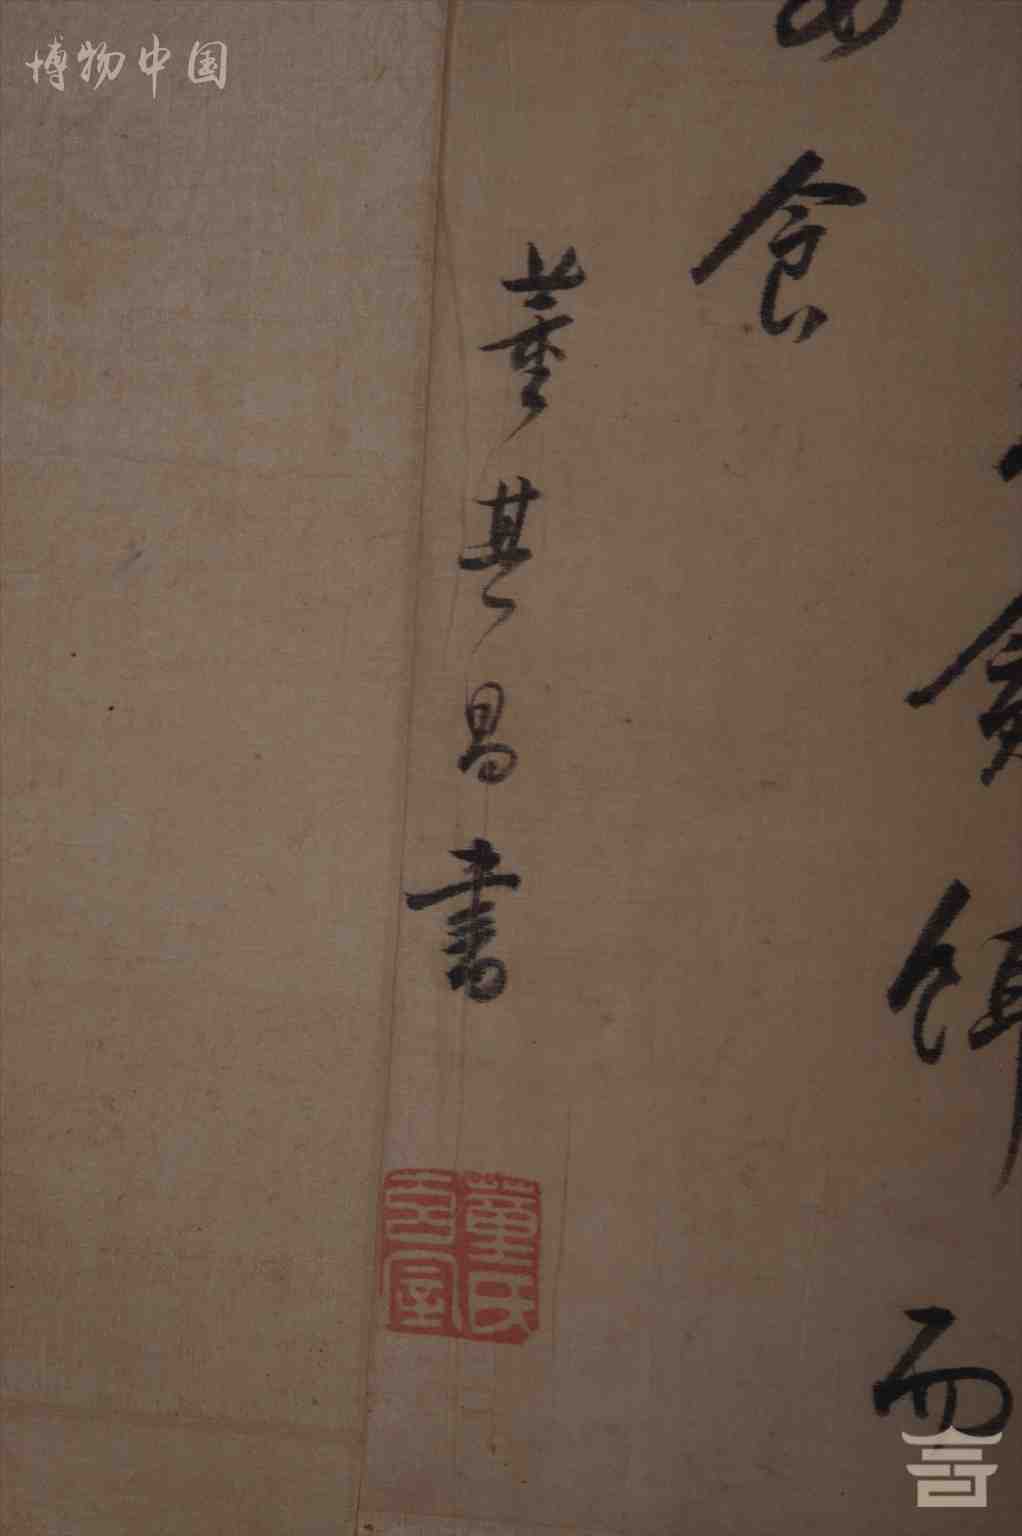 博物中国
貪餌
而
食
董其昌書
董氏
玄宰